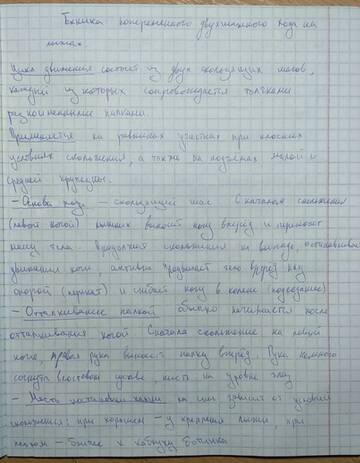 Техника попеременного двухшажного хода на
лыжах.
Цикл движения состоит из двух скользящих шагов,
каждый из которых сопровождается толчками
разноименными палками.
Применяется на равнинных участках при плохих
условиях скольжения, а также на подъемах малой и
средней крутизны.
- Основа - скользящий шаг. С началом скольжения
(левой ногой) лыжник выносит ногу вперед и приносит
массу тела. Продолжая скольжение на выпаде, останавливает
движения ноги, активно продвигает тело вперед над
опорой (перекат) и сгибает ногу в колене (подседание)
- Отталкивание палкой обычно начинается после
отталкивания ногой. Сначала скольжение на левой
ноге, правая рука выносит палку вперед. Рука немного
согнута в локтевом суставе, кисть на уровне глаз
- Место постановки палки на снег зависит от условий
скольжения: при хорошем - у крепления лыжи, при
плохом - ближе к каблуку ботинка